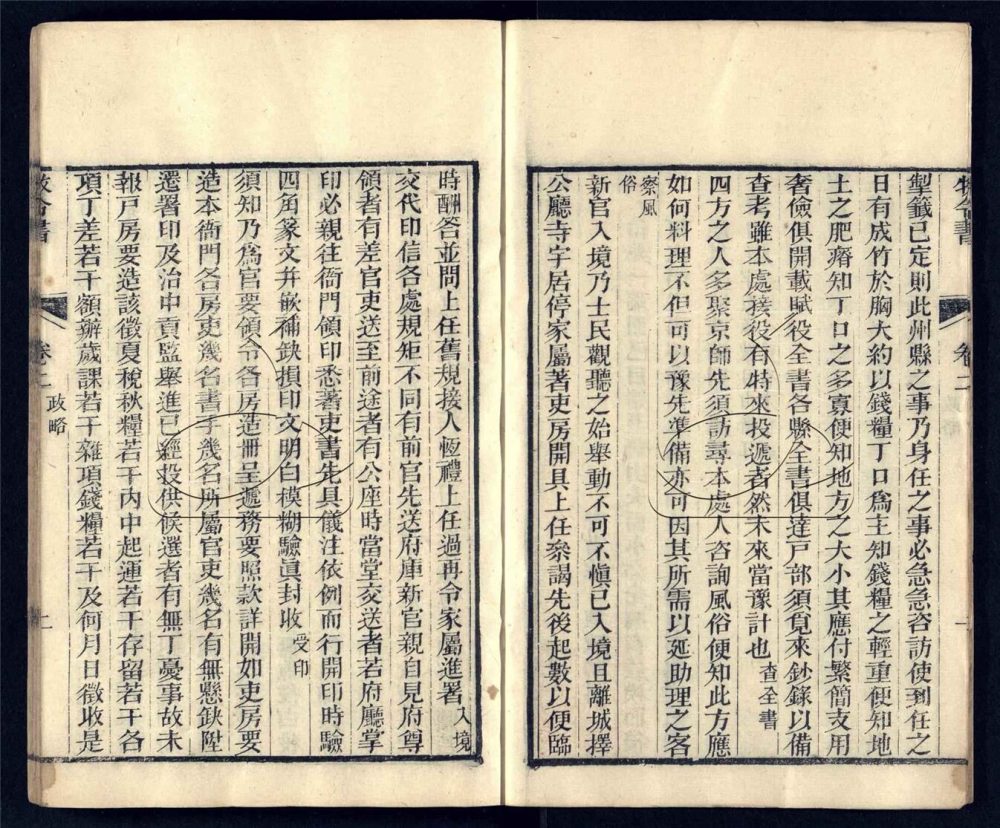 牧令書
卷二
一
掣籤已定則此州縣之事乃身任之事必急急咨訪使到任之
日有成竹於胸大約以錢糧丁口為主知錢糧之輕重便知地
土之肥瘠知丁口之多寡便知地方之大小其應付繁簡支用
奢儉俱開載賦役全書各縣全書俱達戶部須覓來鈔錄以備
查考雖本處接役有特來投遞者然未來當豫計也查全書
四方之人多聚京師先須訪尋本處人咨詢風俗便知此方應
如何料理不但可以豫先準備亦可因其所需以延助理之客
察風俗
新官入境乃士民觀聽之始舉動不可不慎已入境且離城擇
公廳寺宇居停家屬著吏房開具上任叅謁先後起數以便臨
時酬答並問上任舊規接人恆禮上任過再令家屬進署入境
交代印信各處規矩不同有前官先送府庫新官親自見府尊
領者有差官吏送至前途者有公座時當堂交送者若府廳掌
印必親往衙門領印悉著吏書先具儀注依例而行開印時驗
四角篆文并嵌補缺損印文明白模糊驗眞封收受印
須知乃為官要領令各房造冊呈遞務要照款詳開如吏房要
造本衙門各房吏幾名書手幾名所屬官吏幾名有無懸缺陞
遷署印及治中貢監舉進已經投供候選者有無丁憂事故未
報戶房要造該徵夏稅秋糧若干內中起運若干存留若干各
項丁差若干額辦歲課若干雜項錢糧若干及何月日徵收是
牧令書
卷二
政略